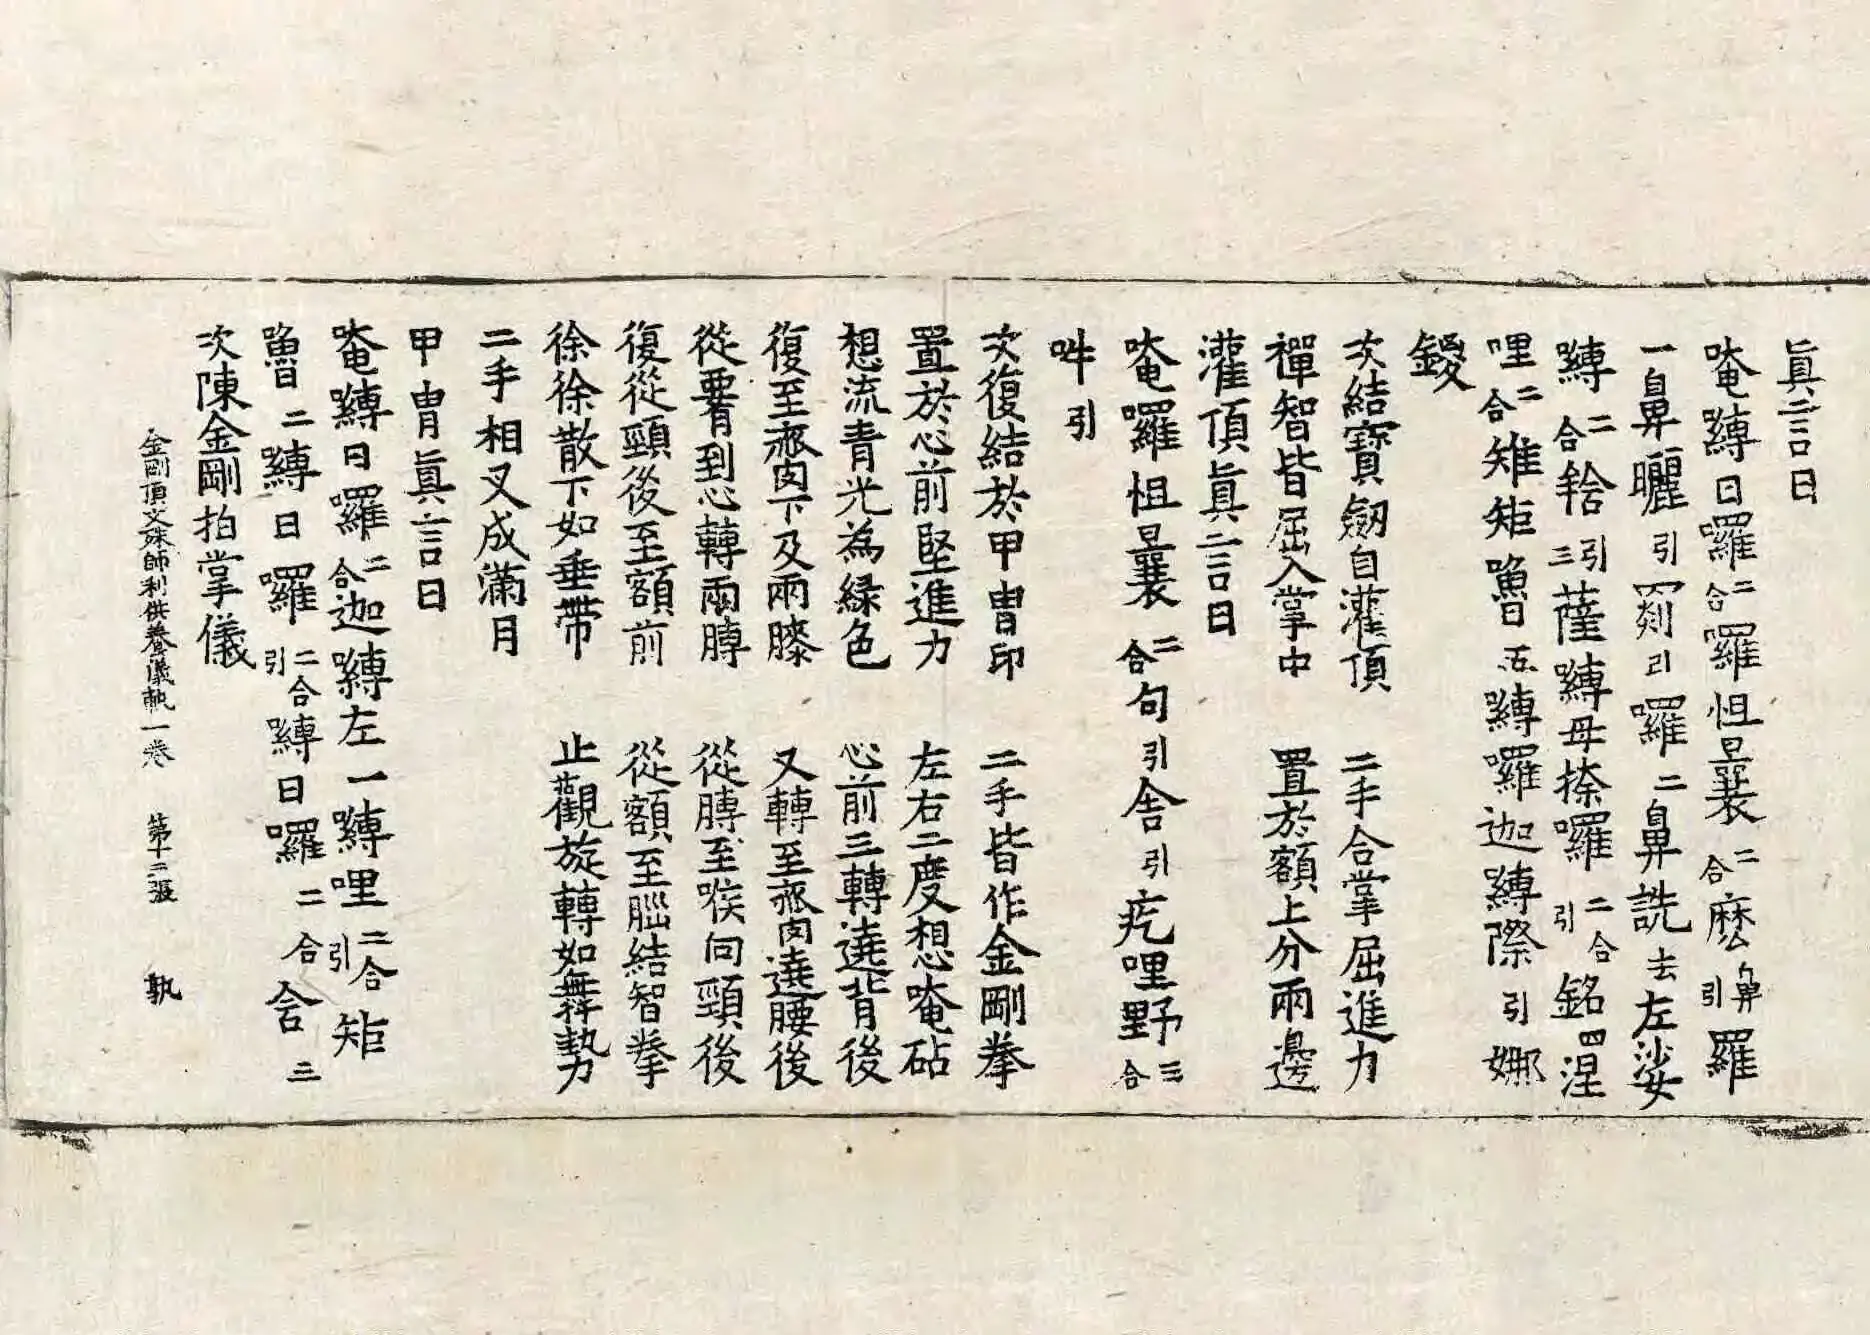 眞言曰
唵嚩日囉二合囉怛曩二合麽鼻引囉
一鼻曬引罽引囉二鼻詵去左娑
嚩二合𩨱引三薩嚩母捺囉二合引銘四涅
哩二合雉矩嚕五嚩囉迦嚩際引娜
鑁
次結寶劒自灌頂 二手合掌屈進力
禪智皆屈入掌中 置於額上分兩邊
灌頂眞言曰
唵囉怛曩二合句引舍引疙哩野三合
吽引
次復結於甲冑印 二手皆作金剛拳
置於心前堅進力 左右二度想唵砧
想流青光為緑色 心前三轉遶背後
復至齊下及兩膝 又轉至齊遶腰後
從要到心轉兩膊 從膊至喉向頸後
復從頸後至額前 從額至𦛁結智拳
徐徐散下如垂帶 止觀旋轉如舞勢
二手相叉成滿月
甲冑眞言曰
唵嚩日囉二合迦嚩左一嚩哩二合引矩
嚕二嚩日囉二合引嚩日囉二合舍三
次陳金剛拍掌儀
金剛頂文殊師利供養儀軌一卷 第十三張 執